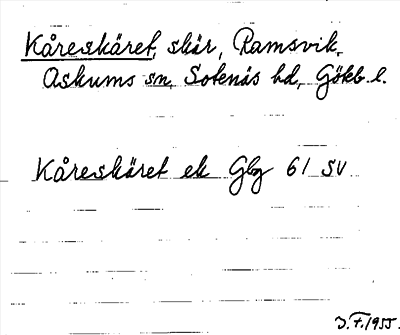 Kåreskäret, skär, Ramsvik,
Askums sn, Sotenäs hd, Gökb. l.
Kåreskäret ek Gbg 61 SV
J.F. 1955.